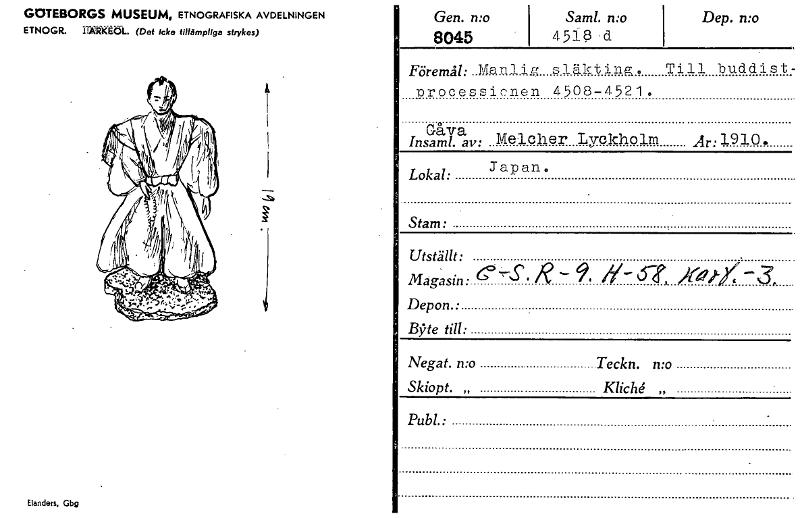 GÖTEBORGS MUSEUM, ETNOGRAFISKA AVDELNINGEN
ETNOGR. ARKEOL. (Det icke tillämpliga strykes)
19 cm.
Elanders, Gbg
Gen. n:o Saml. n:o Dep. n:o
8045 4518 d
Föremål: Manlig släkting. Till buddist-
processionen 4508-4521.
Gåva
Insaml. av: Melcher Lyckholm År: 1910.
Lokal: Japan.
Stam:
Utställt:
Magasin: C-S. R-9. H-58. Kart.-3.
Depon.:
Byte till:
Negat. n:o Teckn. n:o
Skiopt. „ Kliché „
Publ.: